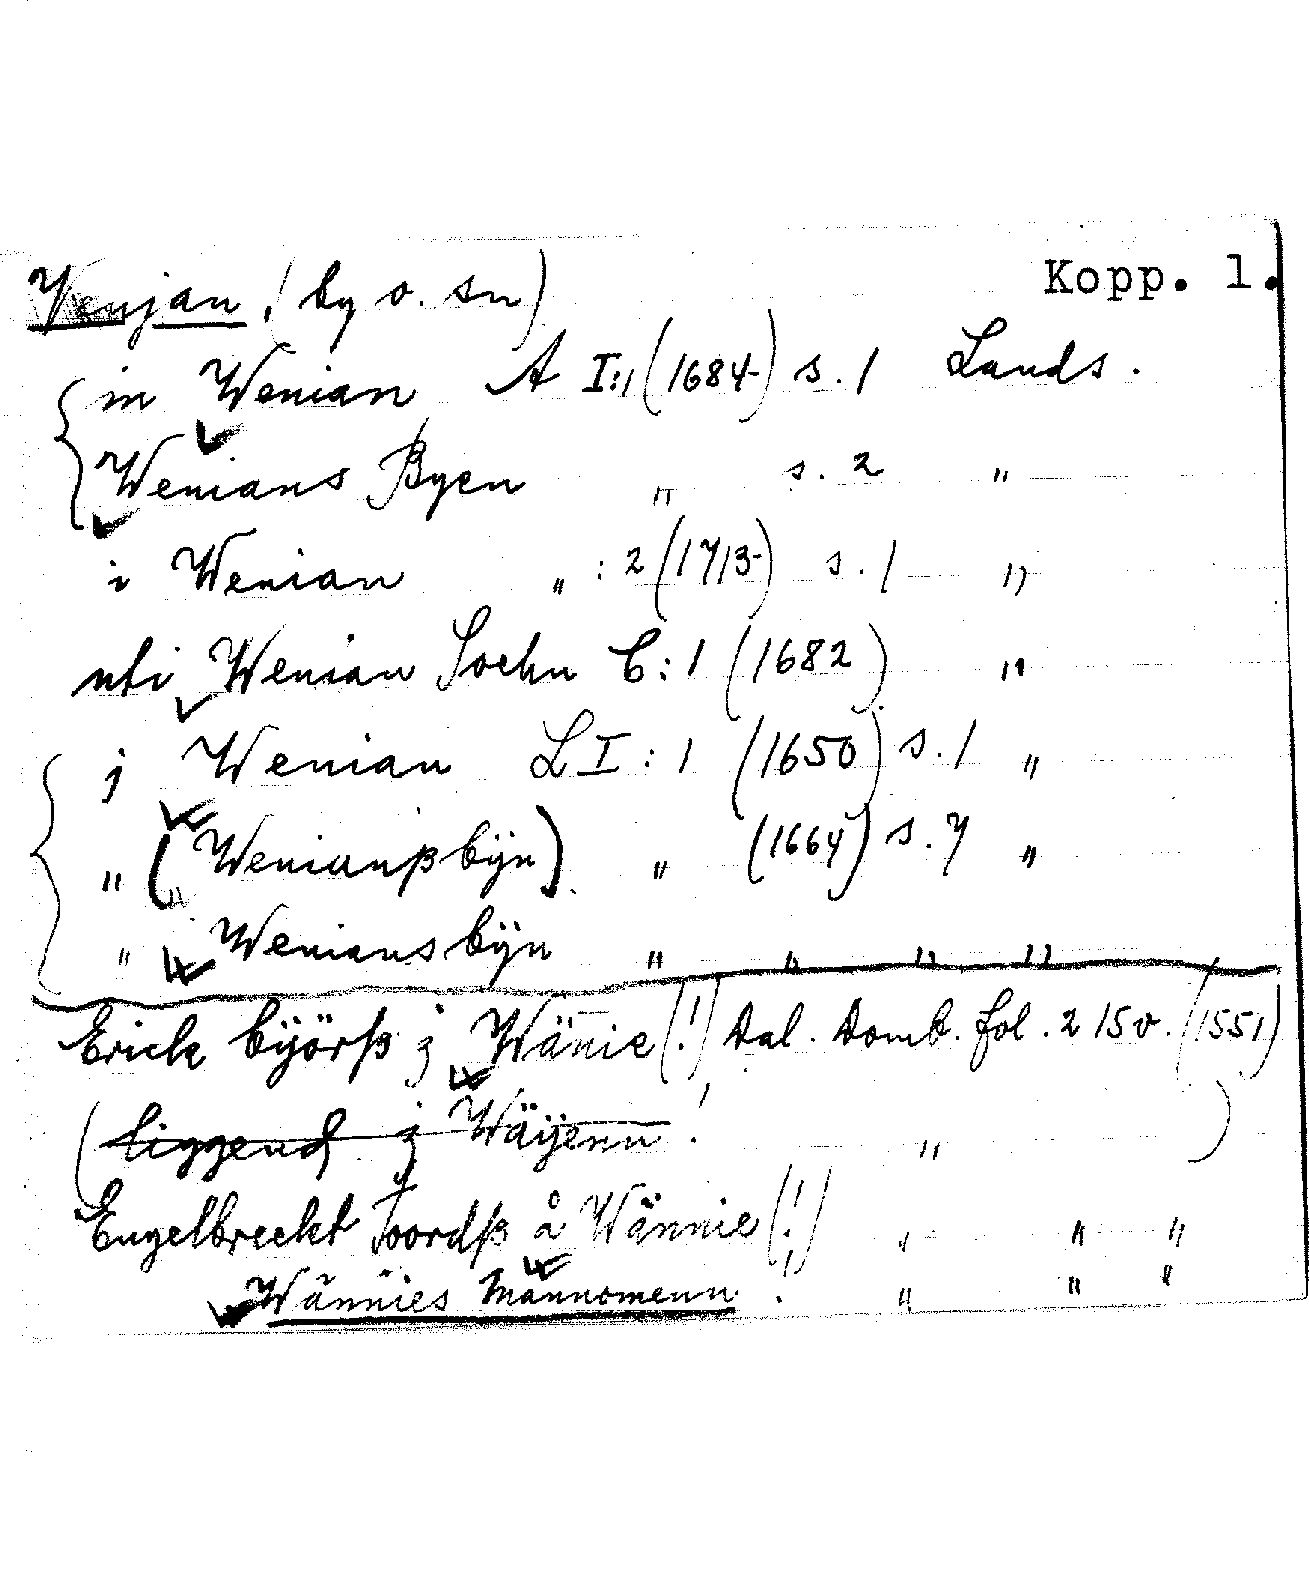 Venjan, (by o. sn) Kopp. 1.
in Wenian A I:1 (1684-) s. 1 Lands.
Wenians Byen " s. 2 "
i Wenian " : 2 (1713-) s. 1 "
uti Wenian Sochn C: 1 (1682) "
j Wenian L I : 1 (1650) s. 1 "
" (Wenianßbÿn) " (1664) s. 7 "
" Weniansbÿn " " " "
Erick byörß j Wänie (!) Dal. Domb. fol. 215v. (1551)
(liggend j Wäÿenn ! " )
Engelbreckt Toordß å Wännie (!) " " "
Wännies Männomenn ! " " "